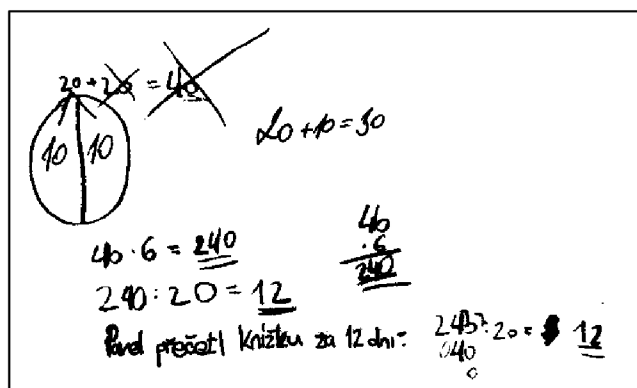 20 + 20 = 40
10 10
20 + 10 = 30
40 · 6 = 240
40
. 6
240
240 : 20 = 12
Pavel přečetl knížku za 12 dní.
240 : 20 = 12
040
0